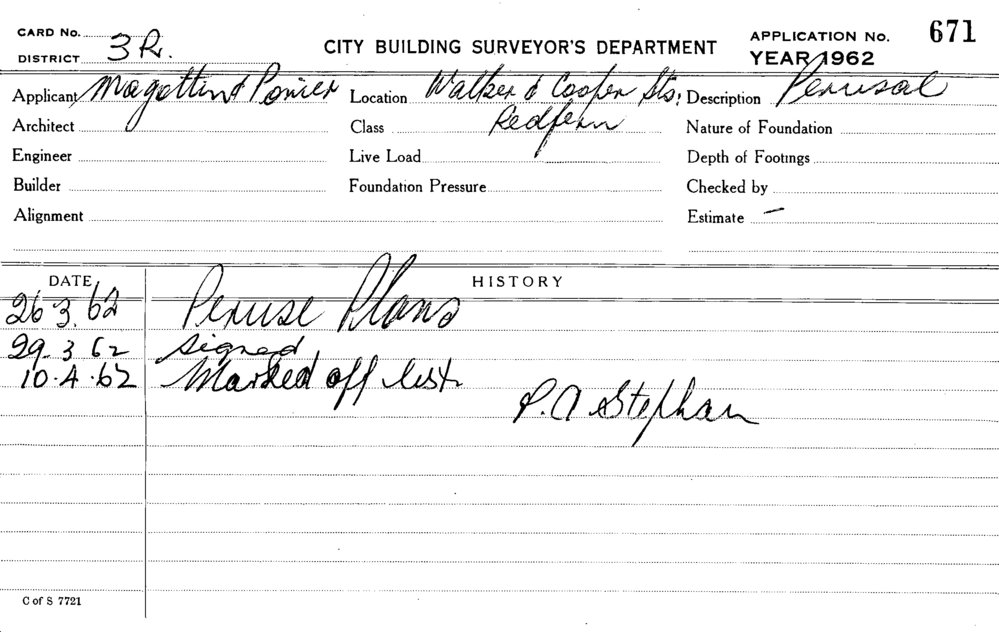 CARD No.
DISTRICT 3R.
CITY BUILDING SURVEYOR'S DEPARTMENT
APPLICATION No. 671
YEAR 1962
Applicant Magottin & Ponier Location Walker & Cooper Sts; Description Perusal
Architect Class Redfern Nature of Foundation
Engineer Live Load Depth of Footings
Builder Foundation Pressure Checked by
Alignment Estimate –
DATE HISTORY
26 3. 62 Peruse Plans
29-3 62 Signed
10.4.62 Marked off list
P.A Stephan
C of S 7721